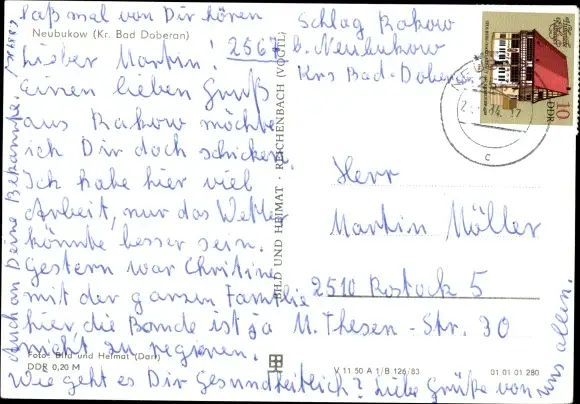 Laß mal von Dir hören
Neubukow (Kr. Bad Doberan)
Lieber Martin.
Einen lieben Gruß
aus Rakow möchte
ich Dir doch schicken.
Ich habe hier viel
Arbeit, nur das Wetter
könnte besser sein.
Gestern war Christine
mit der ganzen Familie
hier, die Bande ist ja
nicht zu regieren.
Wie geht es Dir gesundheitlich? Liebe Grüße von uns allen.
Auch an Deine Bekannte
Schlag Rakow
2567 b. Neubukow
Krs Bad-Doberan
Herr
Martin Möller
2510 Rostock 5
M. Thesen-Str. 30
Foto: Bild und Heimat (Dart)
DDR 0,20 M
V 11 50 A 1/B 126/83
01 01 01 280
BILD UND HEIMAT REICHENBACH (VOGTL)
10
DDR
c